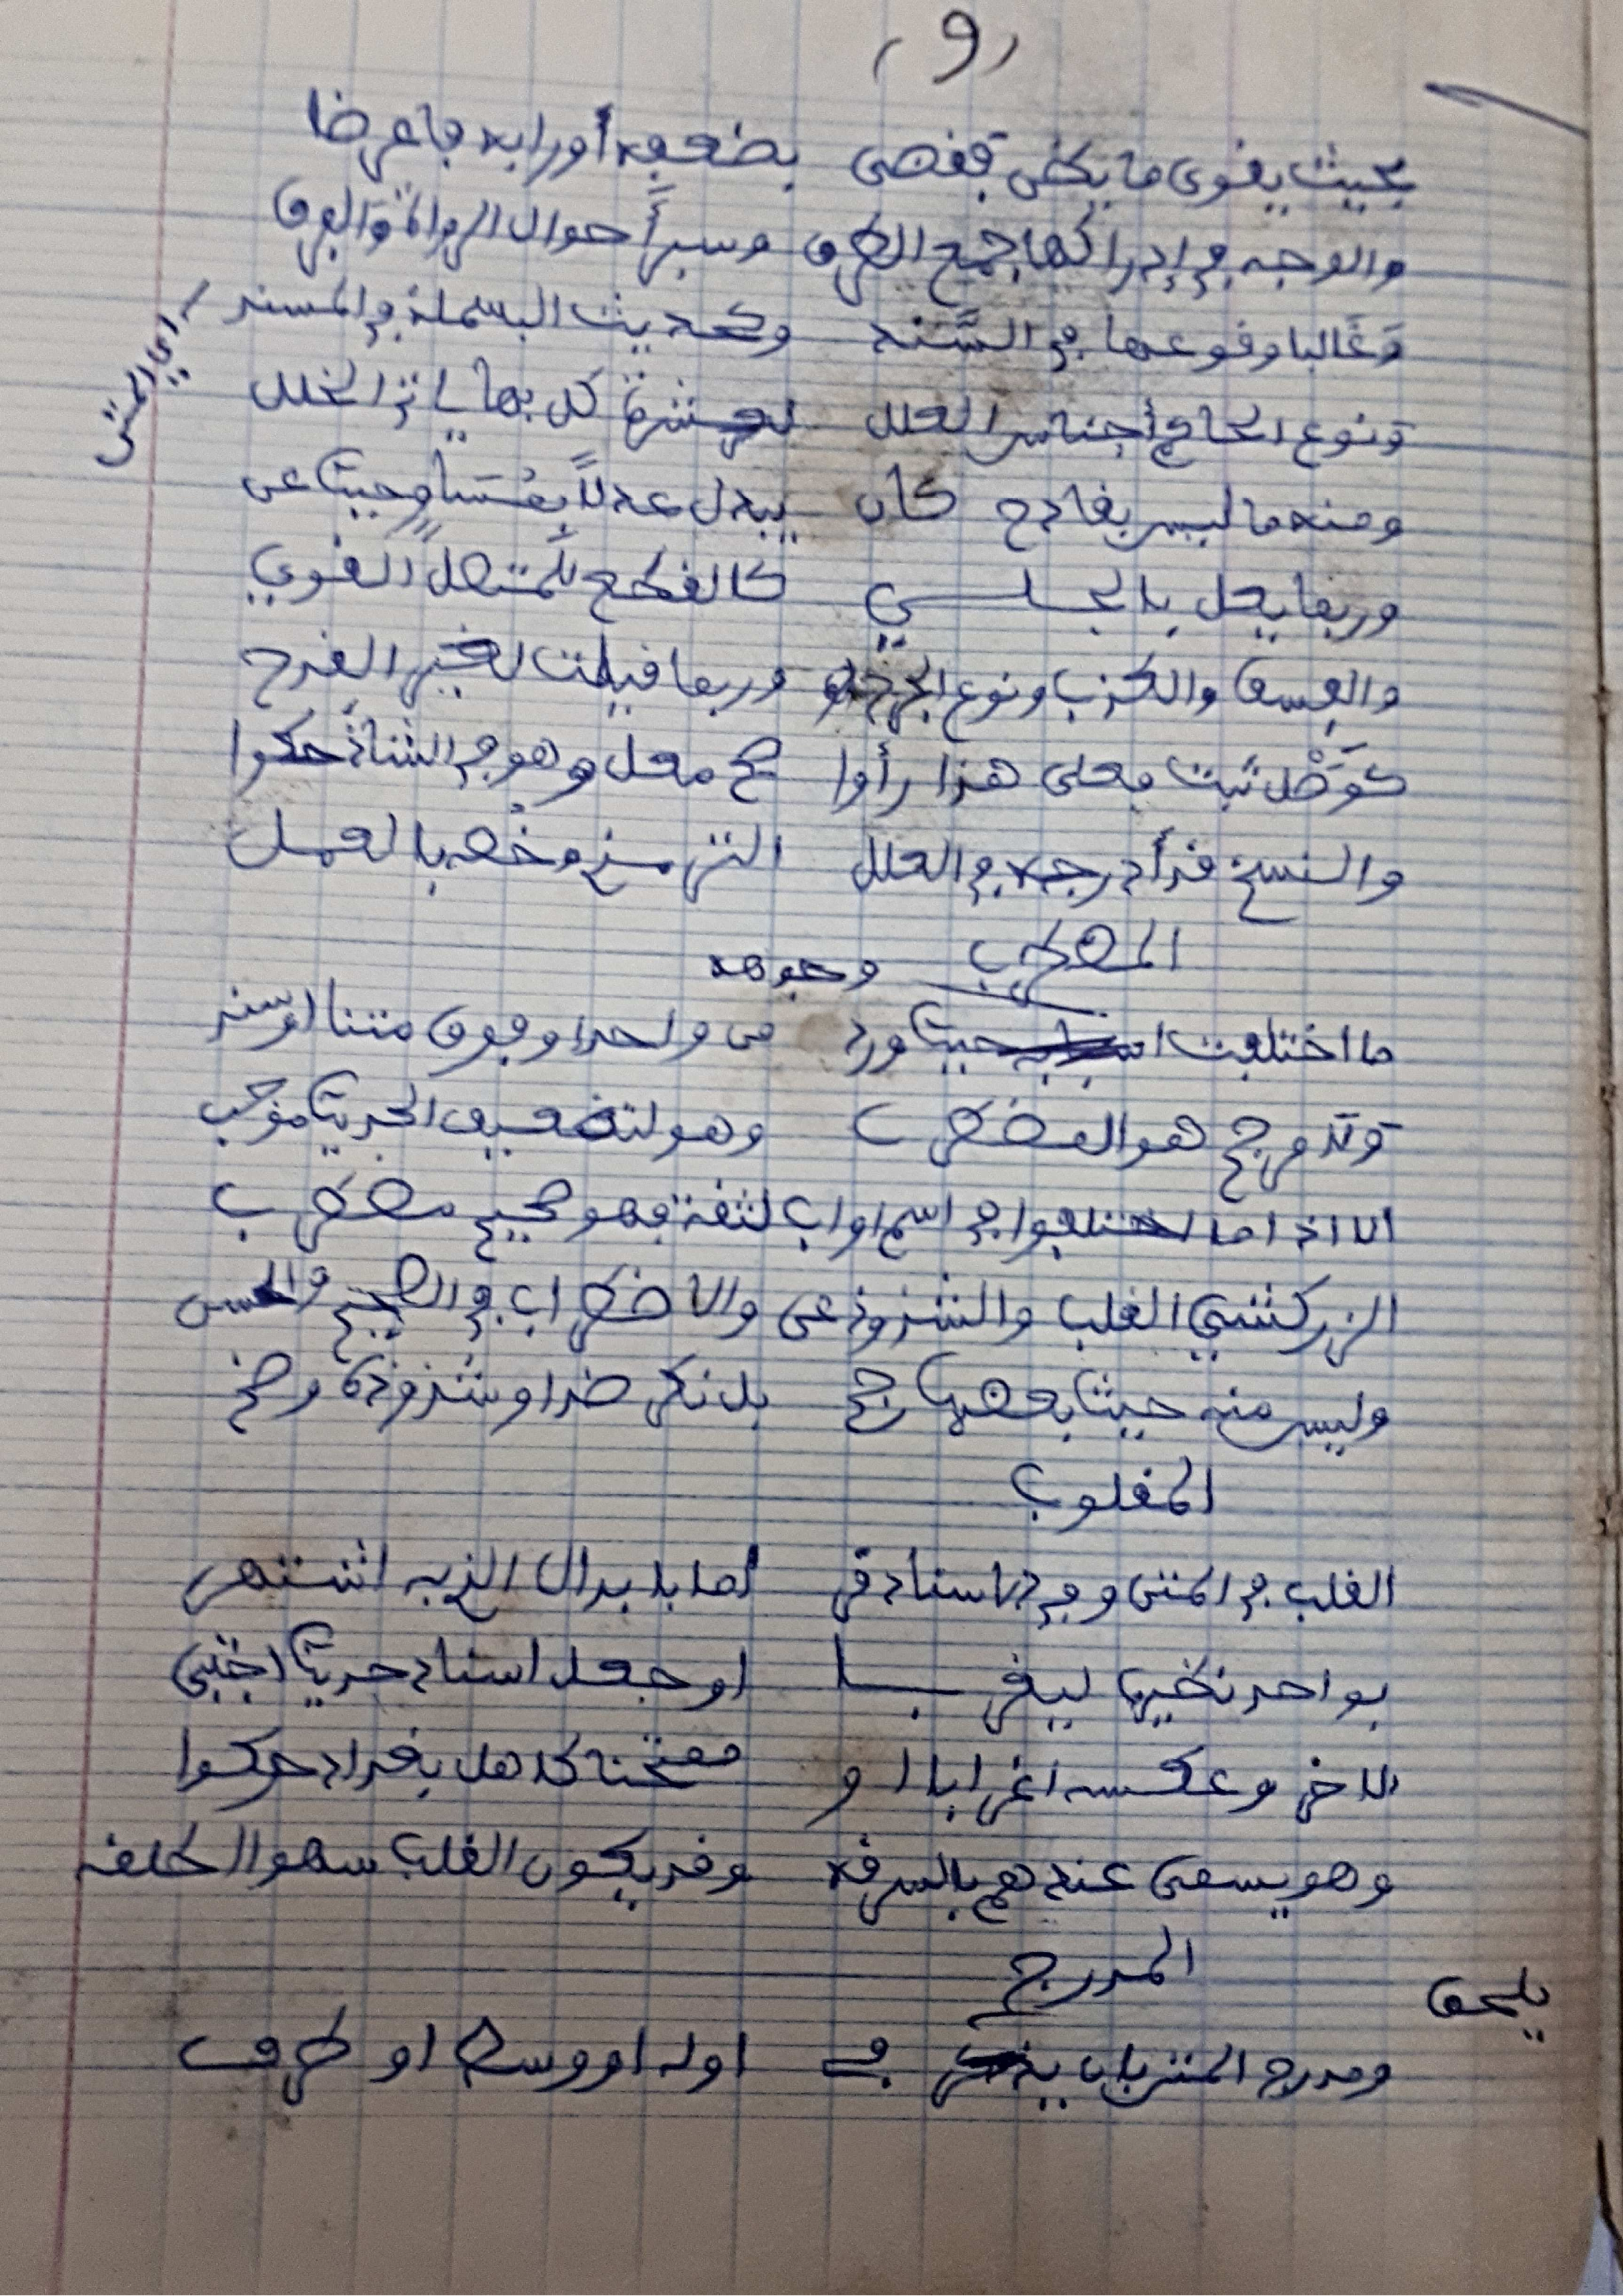 (9)
بحيث يقوى ما يظن فقضى بضعفه أو رابه فأعرضا
والوجه في إدراكها جمع الطرق وسبر أحوال الرواة والفرق
وغالبا وقوعها في السند وكحديث البسملة في المسند
أي المتن
ونوع الحاكم أجناس العلل لعشرة كل بها يأتي الخلل
ومنه ما ليس بقادح كأن يبدل عدلا بمساو حيث عن
وربما يعل بالجلي كالقطع للمتصل القوي
والفسق والكذب ونوع الجرح وربما قيلت لغير القدح
كوصل ثبت فعلى هذا رأوا صح معل وهو في الشاذ حكوا
والنسخ قد أدرجه في العلل الترمذي وخصه بالعمل
المضطرب
ما اختلفت وجوهه حيث ورد من واحد او فوق متنا او سند
ولا مرجح هو المضطرب وهو لتضعيف الحديث موجب
الا اذا ما اختلفوا في اسم او اب لثقة فهو صحيح مضطرب
الزركشي القلب والشذوذ عن والاضطراب في الصحيح والحسن
وليس منه حيث بعضها رجح بل نكر ضد او شذوذه وضح
المقلوب
القلب في المتن وفي الاسناد قر اما بابدال الذي به اشتهر
بواحد نظيره ليغربا او جعل اسناد حديث اجتبى
لاخر وعكسه اغرابا او ممتحنا كاهل بغداد حكوا
وهو يسمى عندهم بالسرقه وقد يكون القلب سهوا اطلقه
المدرج
ومدرج المتن بان يلحق في اوله او وسط او طرف
يلحق